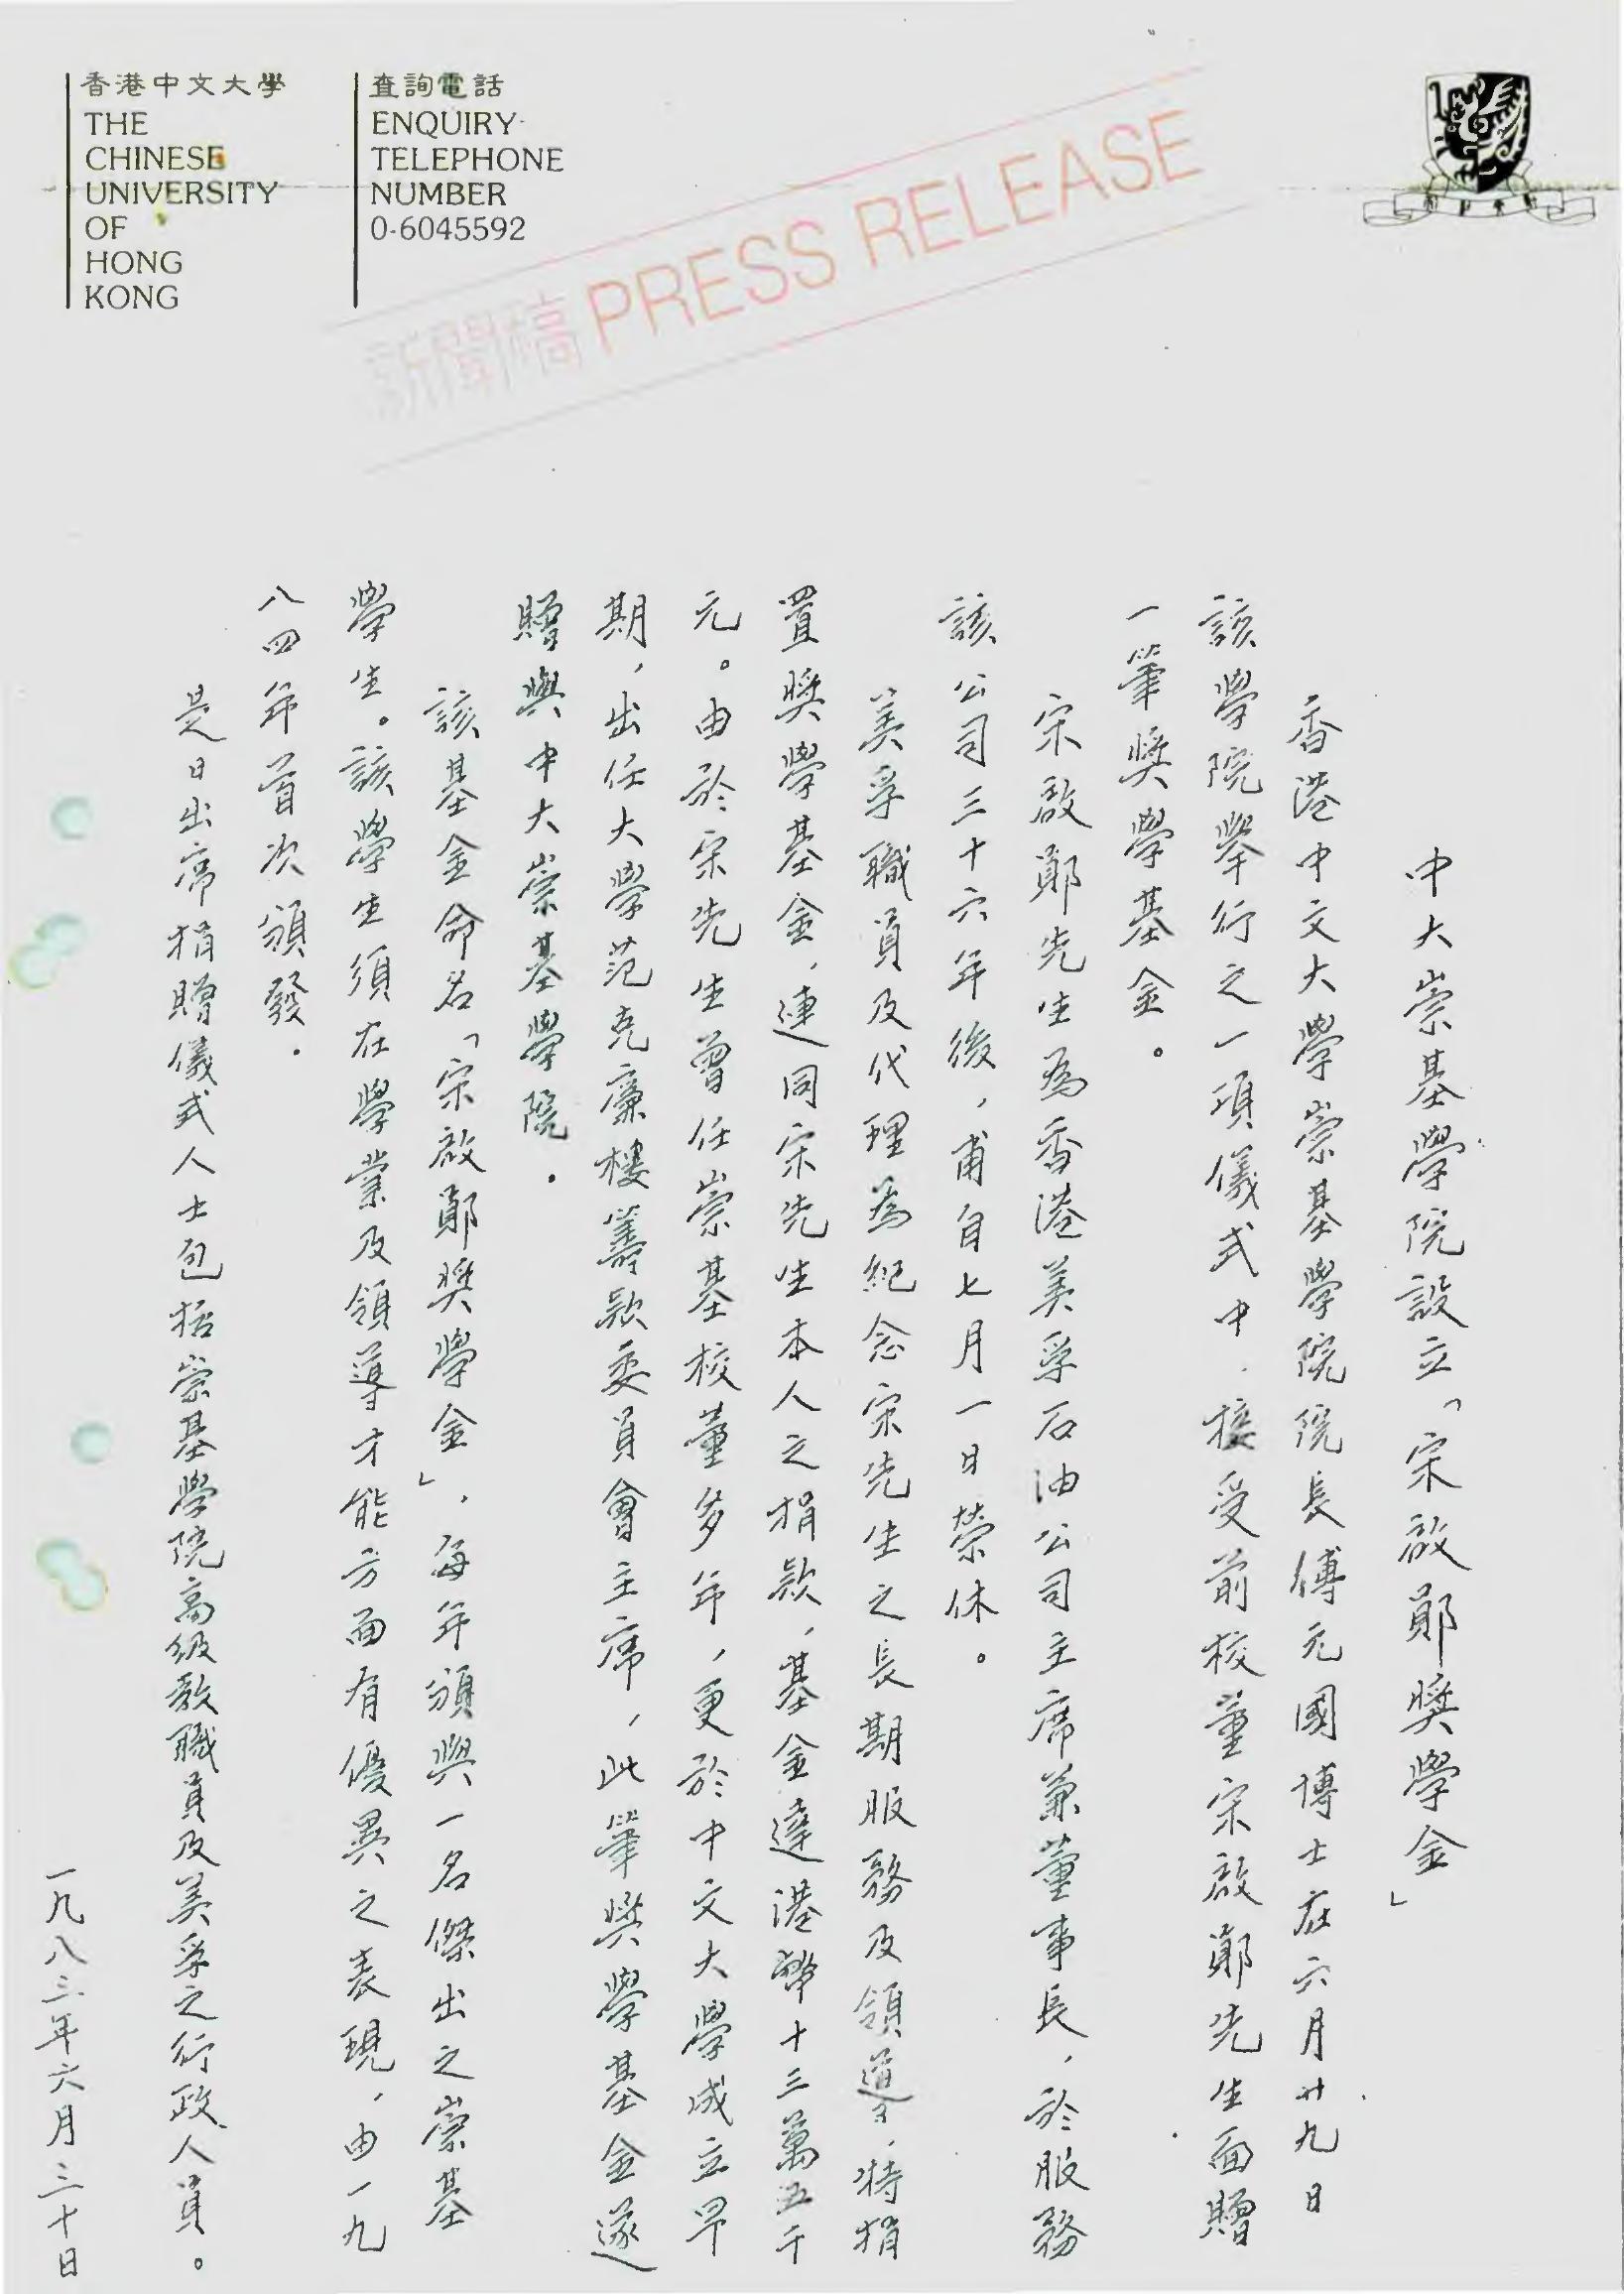 香港中文大學
THE
CHINESE
UNIVERSITY
OF
HONG
KONG
查詢電話
ENQUIRY
TELEPHONE
NUMBER
0-6045592
新聞稿 PRESS RELEASE
中大崇基學院設立「宋啟鄖獎學金」
香港中文大學崇基學院院長傅元國博士在六月廿九日
該學院舉行之一項儀式中,接受前校董宋啟鄖先生面贈
一筆獎學基金。
宋啟鄖先生為香港美孚石油公司主席兼董事長,於服務
該公司三十六年後,甫自七月一日榮休。
美孚職員及代理為紀念宋先生之長期服務及領導,特捐
置獎學基金,連同宋先生本人之捐款,基金達港幣十三萬五千
元。由於宋先生曾任崇基校董多年,更於中文大學成立早
期,出任大學范克廉樓籌款委員會主席,此筆獎學基金遂
贈與中大崇基學院.
該基金命名「宋啟鄖獎學金」,每年頒與一名傑出之崇基
學生。該學生須在學業及領導才能方面有優異之表現,由一九
八四年首次頒發.
是日出席捐贈儀式人士包括崇基學院高級教職員及美孚之行政人員。
一九八三年六月三十日